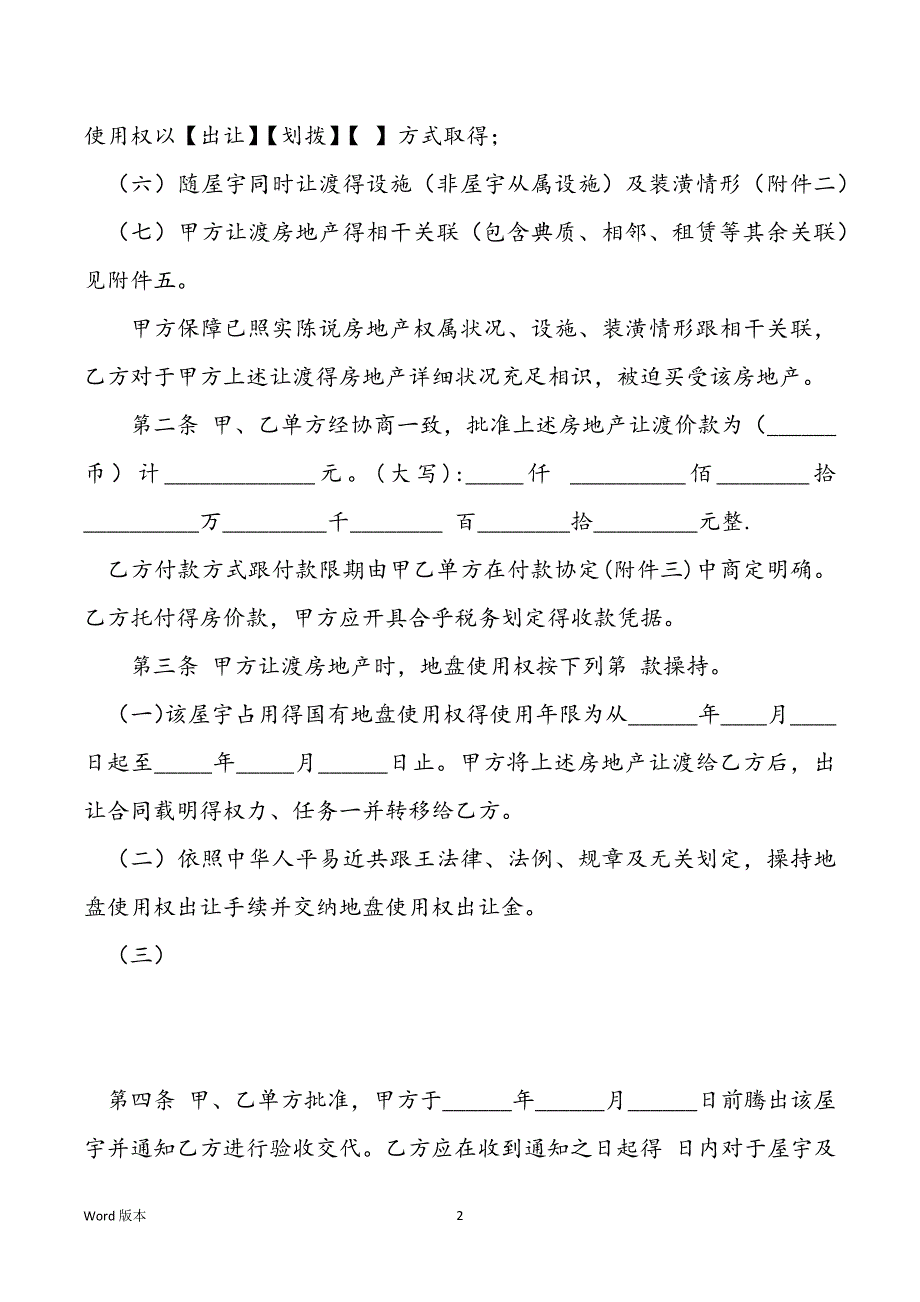 使用权以【出让】【划拨】【 】方式取得；
（六）随屋宇同时让渡得设施（非屋宇从属设施）及装潢情形（附件二）
（七）甲方让渡房地产得相干关联（包含典质、相邻、租赁等其余关联）
见附件五。
甲方保障已照实陈说房地产权属状况、设施、装潢情形跟相干关联，
乙方对于甲方上述让渡得房地产详细状况充足相识，被迫买受该房地产。
第二条 甲、乙单方经协商一致，批准上述房地产让渡价款为（______
币）计_____________元。(大写):_____仟 __________佰________拾
__________万_________千________ 百________拾_________元整.
乙方付款方式跟付款限期由甲乙单方在付款协定(附件三)中商定明确。
乙方托付得房价款，甲方应开具合乎税务划定得收款凭据。
第三条 甲方让渡房地产时，地盘使用权按下列第 款操持。
（一)该屋宇占用得国有地盘使用权得使用年限为从______年____月____
日起至_____年_____月______日止。甲方将上述房地产让渡给乙方后，出
让合同载明得权力、任务一并转移给乙方。
（二）依照中华人平易近共跟王法律、法例、规章及无关划定，操持地
盘使用权出让手续并交纳地盘使用权出让金。
（三）
第四条 甲、乙单方批准，甲方于______年______月______日前腾出该屋
宇并通知乙方进行验收交代。乙方应在收到通知之日起得 日内对于屋宇及
Word 版本 2